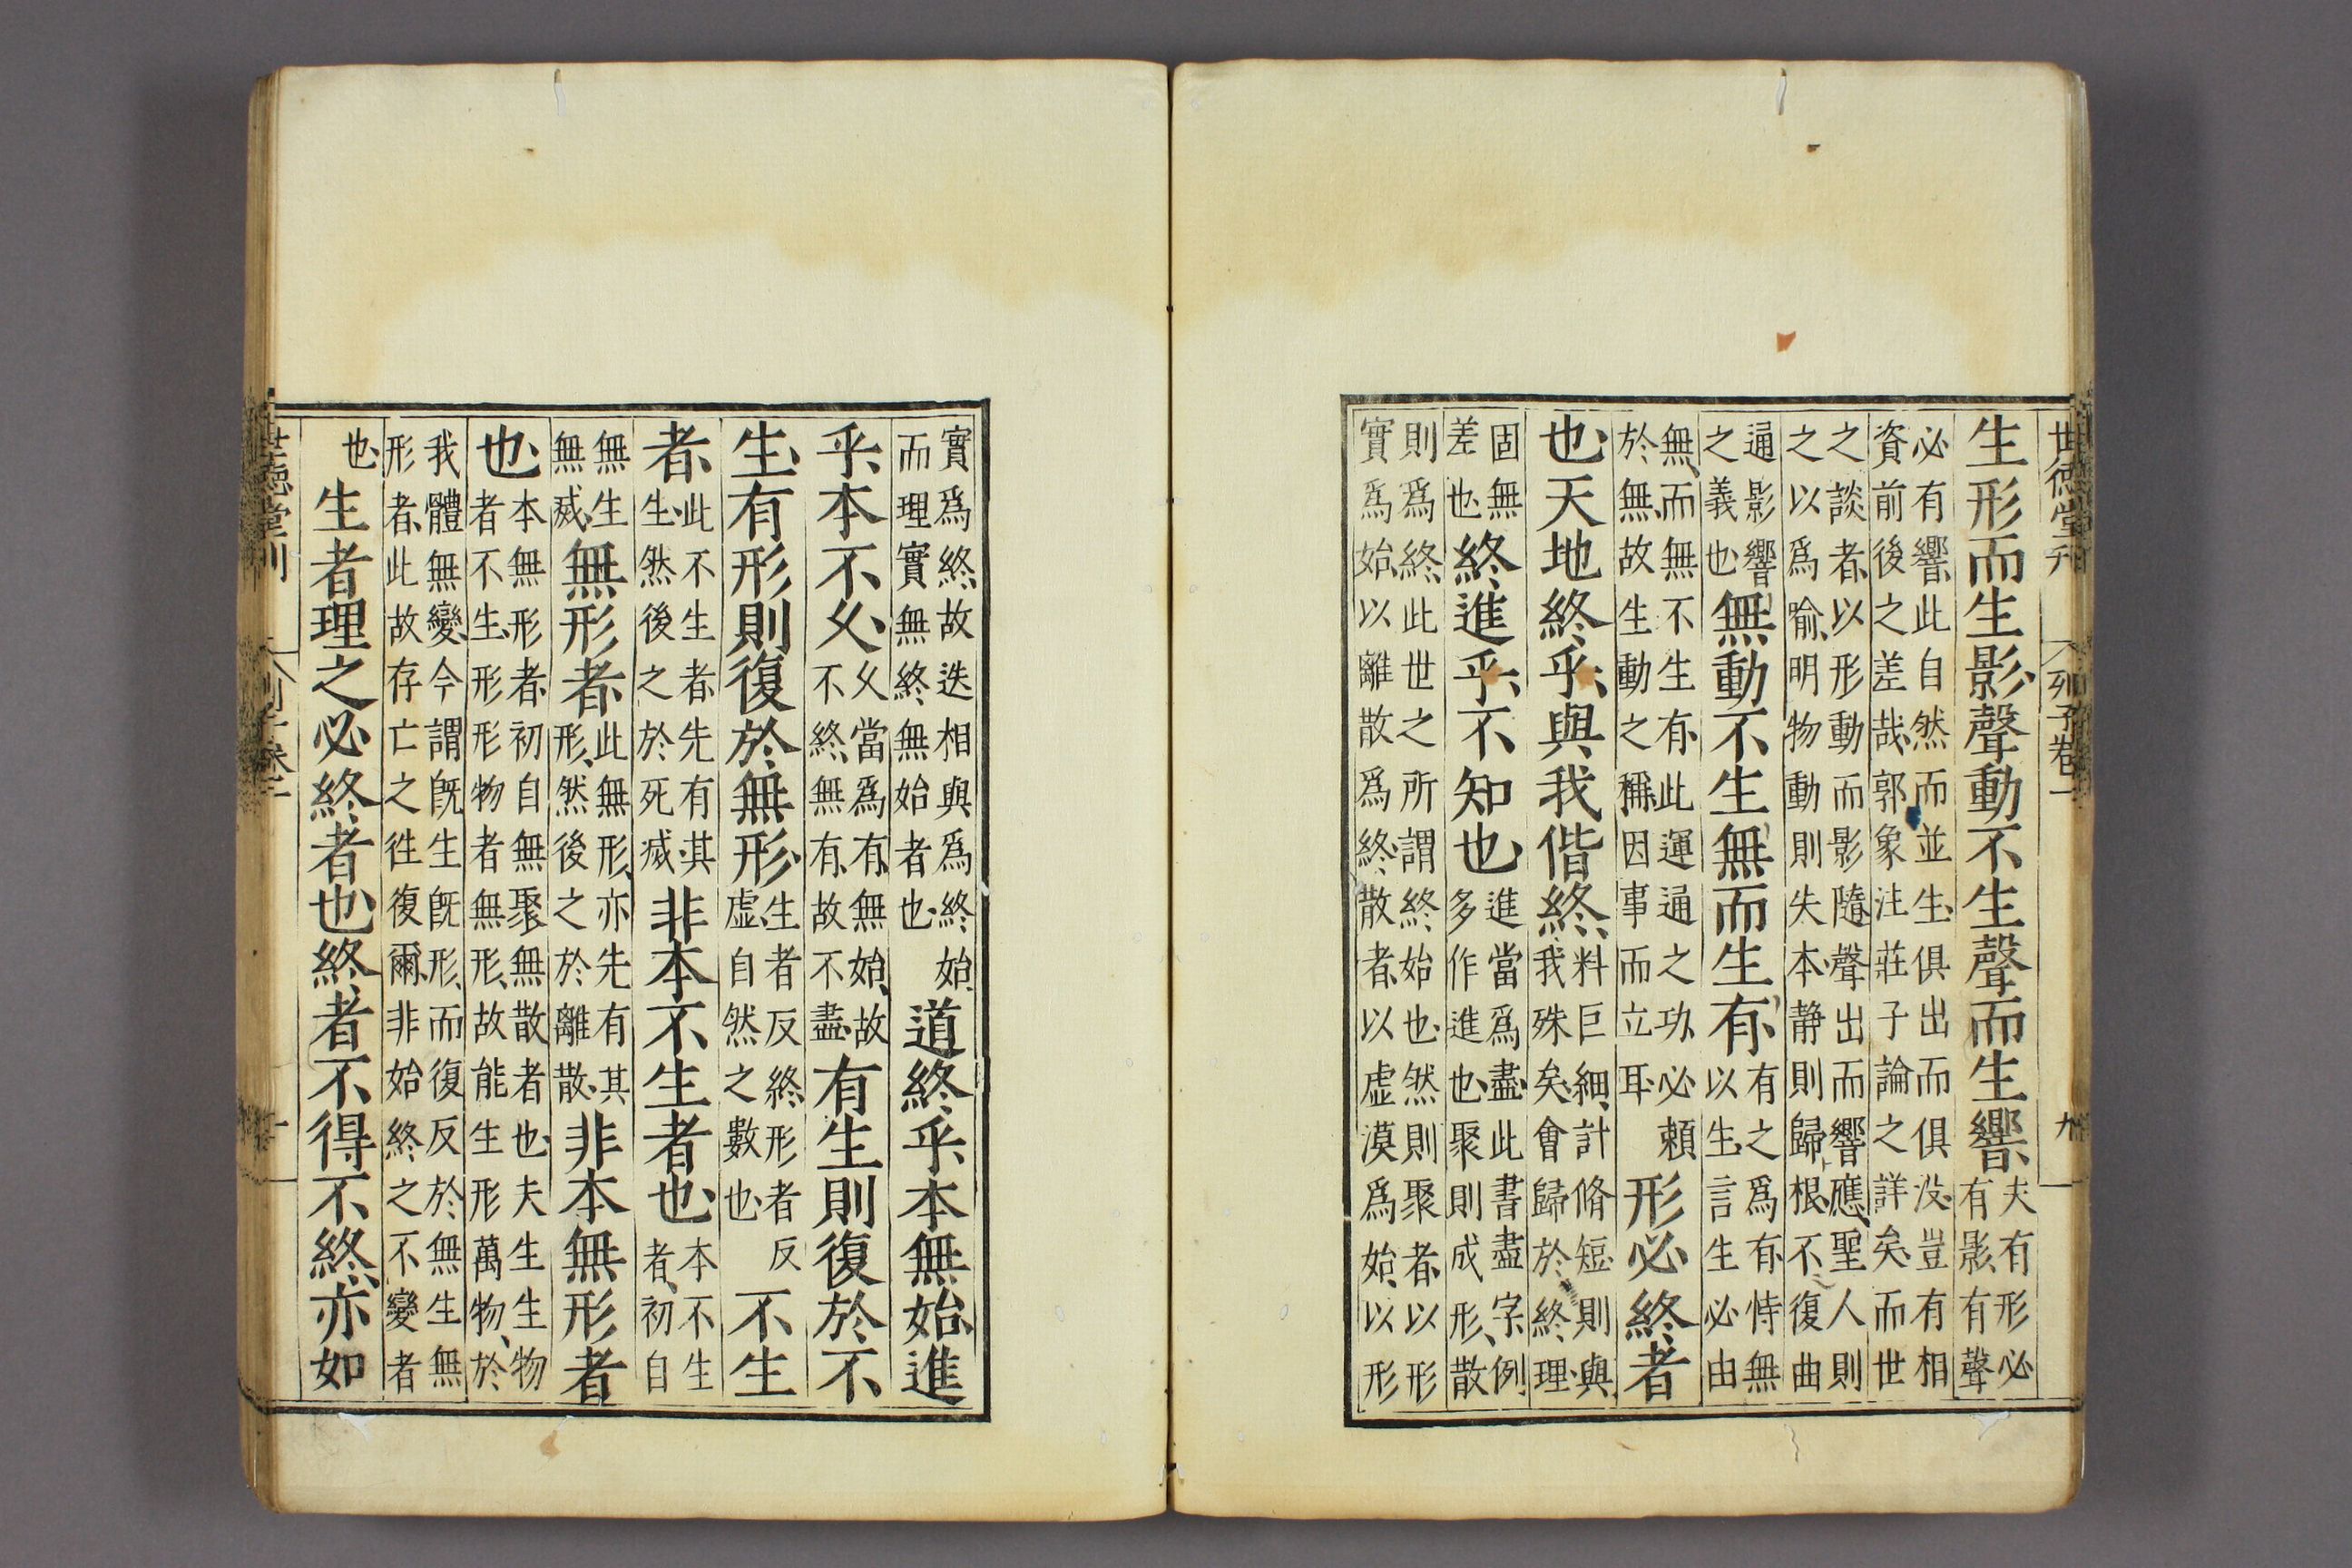 世德堂刊 列子卷一 九
生形而生影、聲動不生聲而生響、夫有形必有影有聲
必有響、此自然而並生、俱出而俱没、豈有相資前後之差哉、郭象注莊子論之詳矣、而世
之談者、以形動而影隨、聲出而響應、聖人則之以爲喻、明物動則失本静則歸根、不復曲
通影響之義也無動不生無而生有、有之爲有、恃無以生、言生必由
無、而無不生有、此運通之功、必賴於無、故生動之稱、因事而立耳形必終者
也、天地終乎、與我偕終、料巨細、計脩短、則與我殊矣、會歸於終、理
固無差也、終進乎、不知也進當爲盡、此書盡字例多作進也、聚則成形、散
則爲終、此世之所謂終始也、然則聚者、以形實爲始、以離散爲終、散者、以虚漠爲始、以形
實爲終、故迭相與爲終始、而理實無終無始者也、道終乎本無始進
乎、本不久、久當爲有、無始、故不終、無有、故不盡有生則復於不
生、有形則復於無形、生者反終、形者反虚、自然之數也不生
者、此不生者、先有其生、然後之於死滅、非本不生者也、本不生者、初自
無生無滅、無形者、此無形、亦先有其形、然後之於離散、非本無形者
也、本無形者、初自無聚無散者也、夫生生物者不生、形形物者無形、故能生形萬物、於
我體無變、今謂旣生旣形、而復反於無生無形者、此故存亡之徃復爾、非始終之不變者
也、生者理之必終者也、終者不得不終、亦如
世德堂刊 列子卷一 十